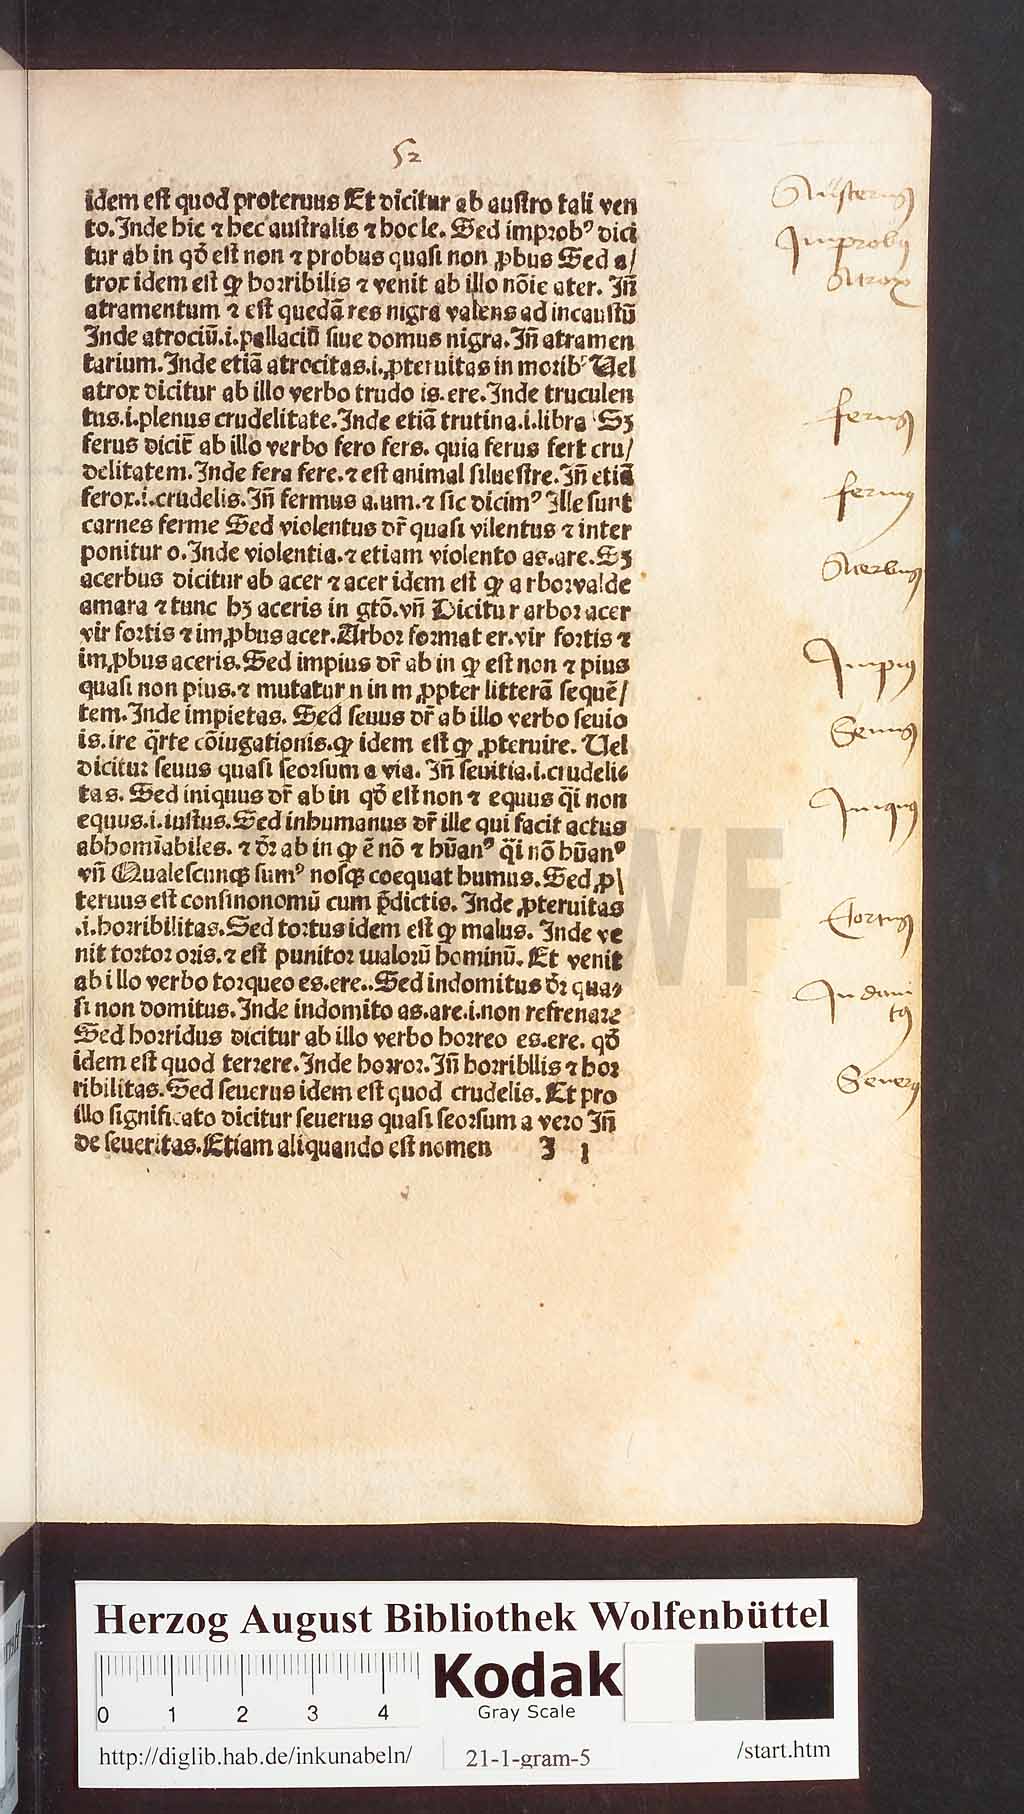 52
idem est quod proteruus Et dicitur ab austro tali ven
to. Inde hic ⁊ hec australis ⁊ hoc le. Sed improbꝰ dici
tur ab in qđ est non ⁊ probus quasi non ꝓbus Sed a/
trox idem est ꝙ horribilis ⁊ venit ab illo nōie ater. Iñ
atramentum ⁊ est quedā res nigra valens ad incaustū
Inde atrociū.i.pallaciū siue domus nigra. Iñ atramen
tarium. Inde etiā atrocitas.i.ꝓteruitas in moribꝰ Uel
atrox dicitur ab illo verbo trudo is.ere. Inde truculen
tus.i.plenus crudelitate. Inde etiā trutina.i.libra Sꝫ
ferus dicit̄ ab illo verbo fero fers. quia ferus fert cru/
delitatem. Inde fera fere.⁊ est animal siluestre. Iñ etiā
ferox.i.crudelis. Iñ fermus a.um.⁊ sic dicimꝰ Ille sunt
carnes ferme Sed violentus dr̄ quasi vilentus ⁊ inter
ponitur o. Inde violentia.⁊ etiam violento as.are. Sꝫ
acerbus dicitur ab acer ⁊ acer idem est ꝙ a rbor valde
amara ⁊ tunc hꝫ aceris in gtō. vñ Dicitu r arbor acer
vir fortis ⁊ imꝓbus acer. Arbor format er. vir fortis ⁊
imꝓbus aceris. Sed impius dr̄ ab in ꝙ est non ⁊ pius
quasi non pius.⁊ mutatur n in m ꝓpter litterā sequē/
tem. Inde impietas. Sed seuus dr̄ ab illo verbo seuio
is.ire q̄rte cōiugationis. ꝙ idem est ꝙ ꝓteruire. Uel
dicitur seuus quasi seorsum a via. Iñ seuitia.i.crudeli⸗
tas. Sed iniquus dr̄ ab in qđ est non ⁊ equus q̄i non
equus.i.iustus. Sed inhumanus dr̄ ille qui facit actus
abhomīabiles. ⁊ dr̄ ab in ꝙ ē nō ⁊ hūanꝰ q̄i nō hūanꝰ
vñ Qualescunqꝫ sumꝰ nosqꝫ coequat humus. Sed ꝓ/
teruus est consinonomū cum p̄dictis. Inde ꝓteruitas
.i.horribilitas. Sed tortus idem est ꝙ malus. Inde ve
nit tortor oris.⁊ est punitor malorū hominū. Et venit
ab illo verbo torqueo es.ere.. Sed indomitus dr̄ qua⸗
si non domitus. Inde indomito as.are.i.non refrenare
Sed horridus dicitur ab illo verbo horreo es.ere. qđ
idem est quod terrere. Inde horror. Iñ horribllis ⁊ hor
ribilitas. Sed seuerus idem est quod crudelis. Et pro
illo significato dicitur seuerus quasi seorsum a vero Iñ
de seueritas. Etiam aliquando est nomen I 1
Austerus
Improbus
Atrox
ferus
fermus
Acerbus
Impius
Seuus
Iniquus
Tortus
Indomi
tus
Seuerus
HAB WF
Herzog August Bibliothek Wolfenbüttel
0 1 2 3 4
Kodak
Gray Scale
http://diglib.hab.de/inkunabeln/ 21-1-gram-5 /start.htm